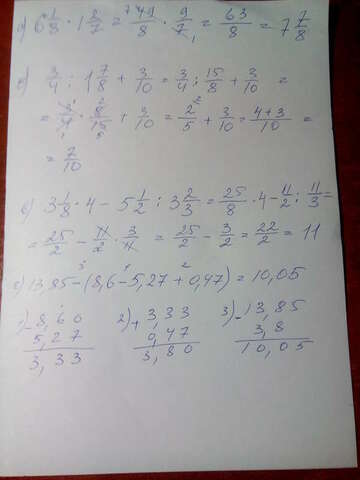 а) 6 1/8 · 1 2/7 = 49/8 · 9/7 = 63/8 = 7 7/8
3/4 : 1 7/8 + 3/10 = 3/4 : 15/8 + 3/10 =
= 3/4 · 8/15 + 3/10 = 2/5 + 3/10 = 4+3/10 =
= 7/10
3 1/8 · 4 - 5 1/2 : 3 2/3 = 25/8 · 4 - 11/2 : 11/3 =
= 25/2 - 11/2 · 3/11 = 25/2 - 3/2 = 22/2 = 11
13,85 - (8,6 - 5,27 + 0,47) = 10,05
1) - 8,60 2) + 3,33 3) - 13,85
5,27 0,47 3,8
3,33 3,80 10,05